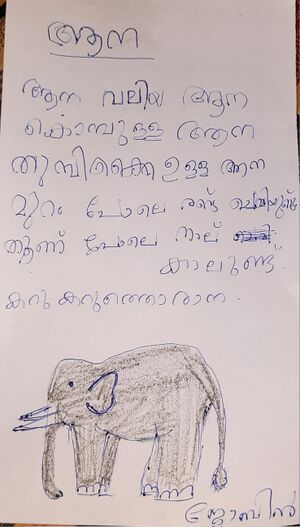 ആന
ആന വലിയ ആന
കൊമ്പുള്ള ആന
തുമ്പിക്കൈ ഉള്ള ആന
മുറം പോലെ രണ്ട് ചെവിയുണ്ട്
തൂണ് പോലെ നാല്
കാലുണ്ട്.
കറു കറുത്തൊരാന.
ജോബിൻ